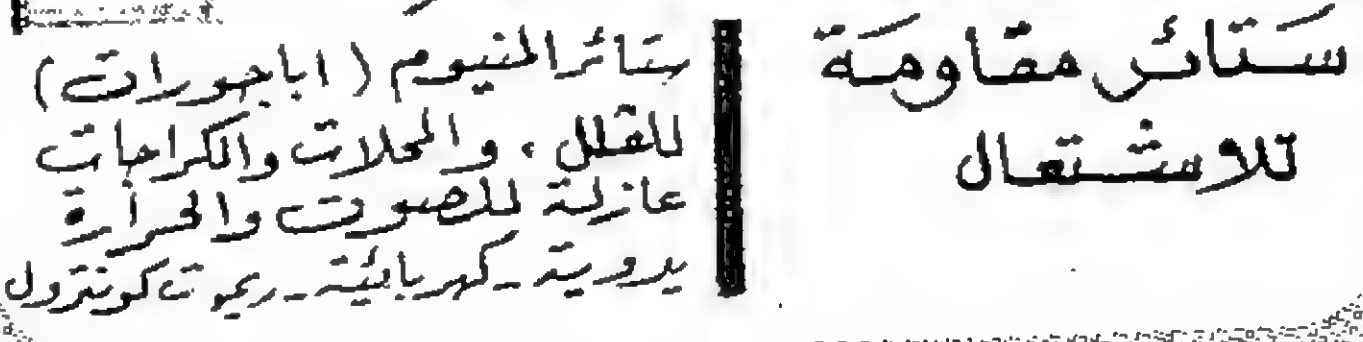 ستائر مقاومة
للاشتعال
ستائر المنيوم (اباجورات)
للفلل، والمحلات والكراجات
عازلة للصوت والحرارة
يدوية - كهربائية - ريموت كونترول